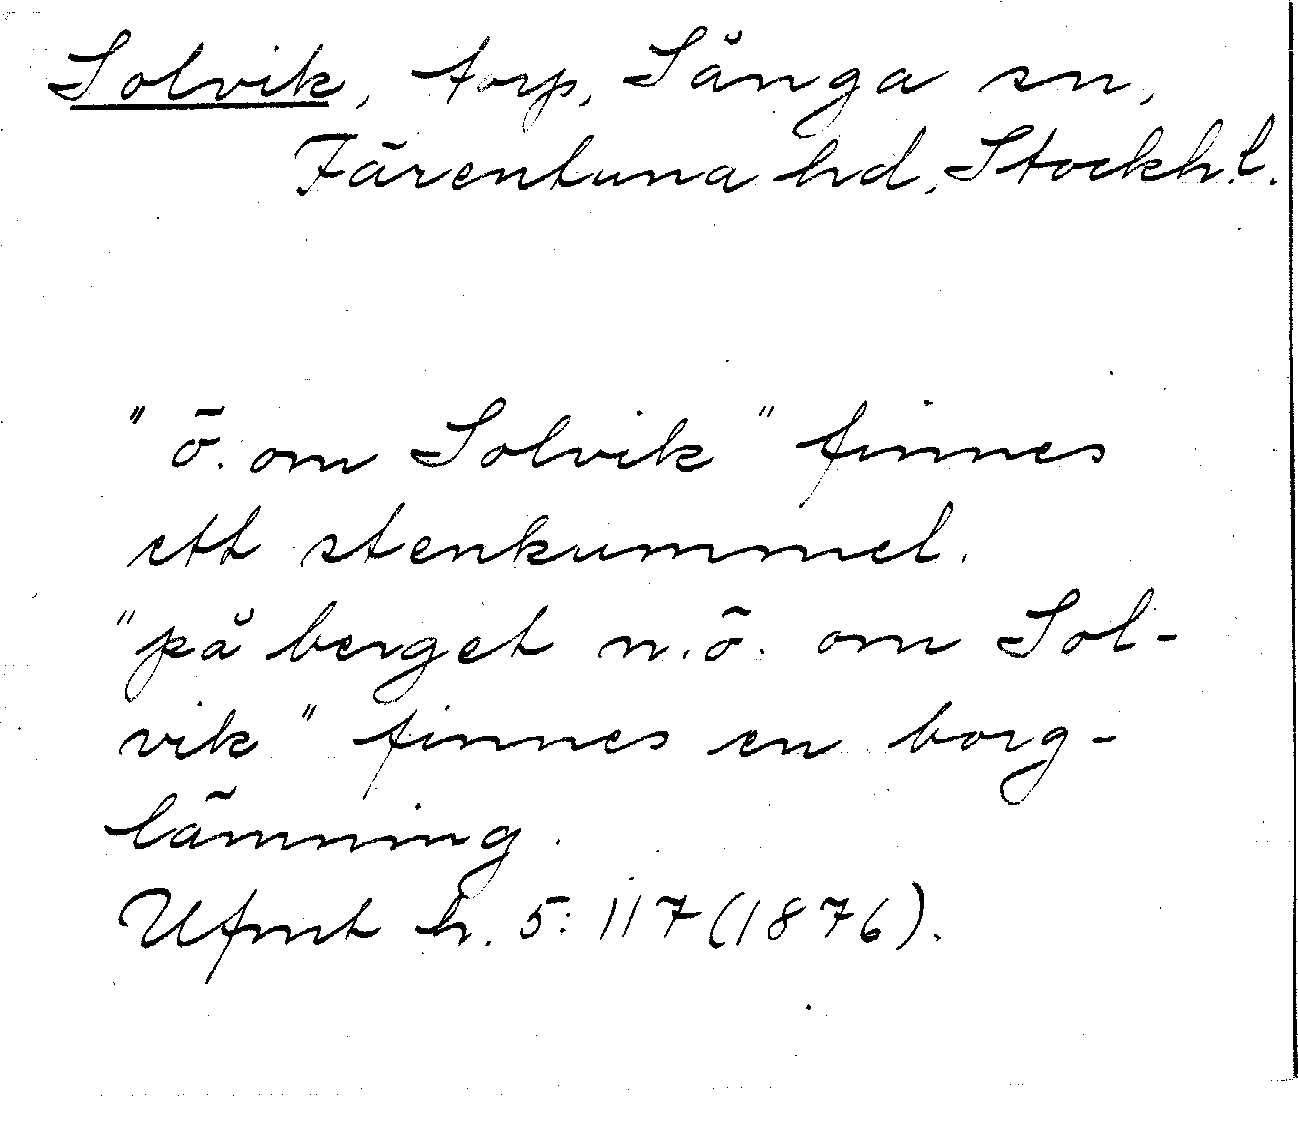 Solvik, torp, Sånga sn,
Färentuna hd, Stockh.l.
"ö. om Solvik" finnes
ett stenkummel.
"på berget n.ö. om Sol-
vik" finnes en borg-
lämning.
Ufmt h. 5: 117 (1876).